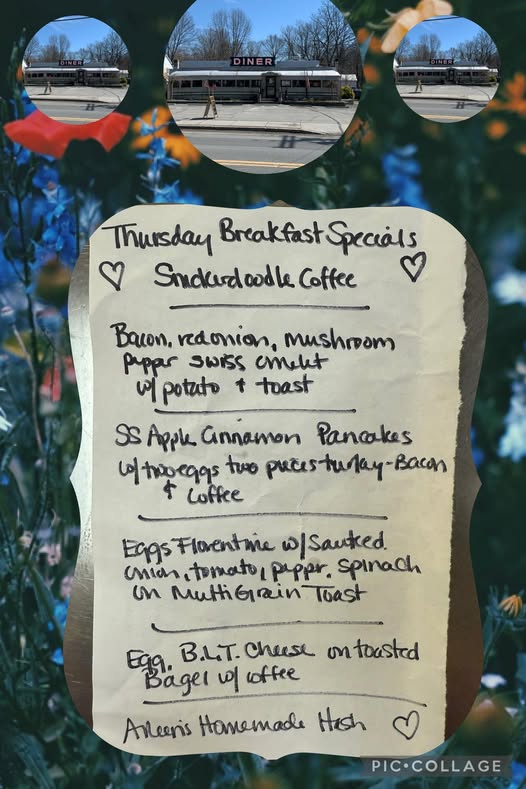 DINER
DINER
DINER
Thursday Breakfast Specials
Snickerdoodle Coffee
Bacon, red onion, mushroom
pepper swiss omelet
w/ potato + toast
SS Apple Cinnamon Pancakes
w/ two eggs two pieces turkey-Bacon
+ Coffee
Eggs Florentine w/ Sauteed
onion, tomato, pepper, spinach
on MultiGrain Toast
Egg, B.L.T. Cheese on toasted
Bagel w/ coffee
Arleen's Homemade Hash
PIC•COLLAGE